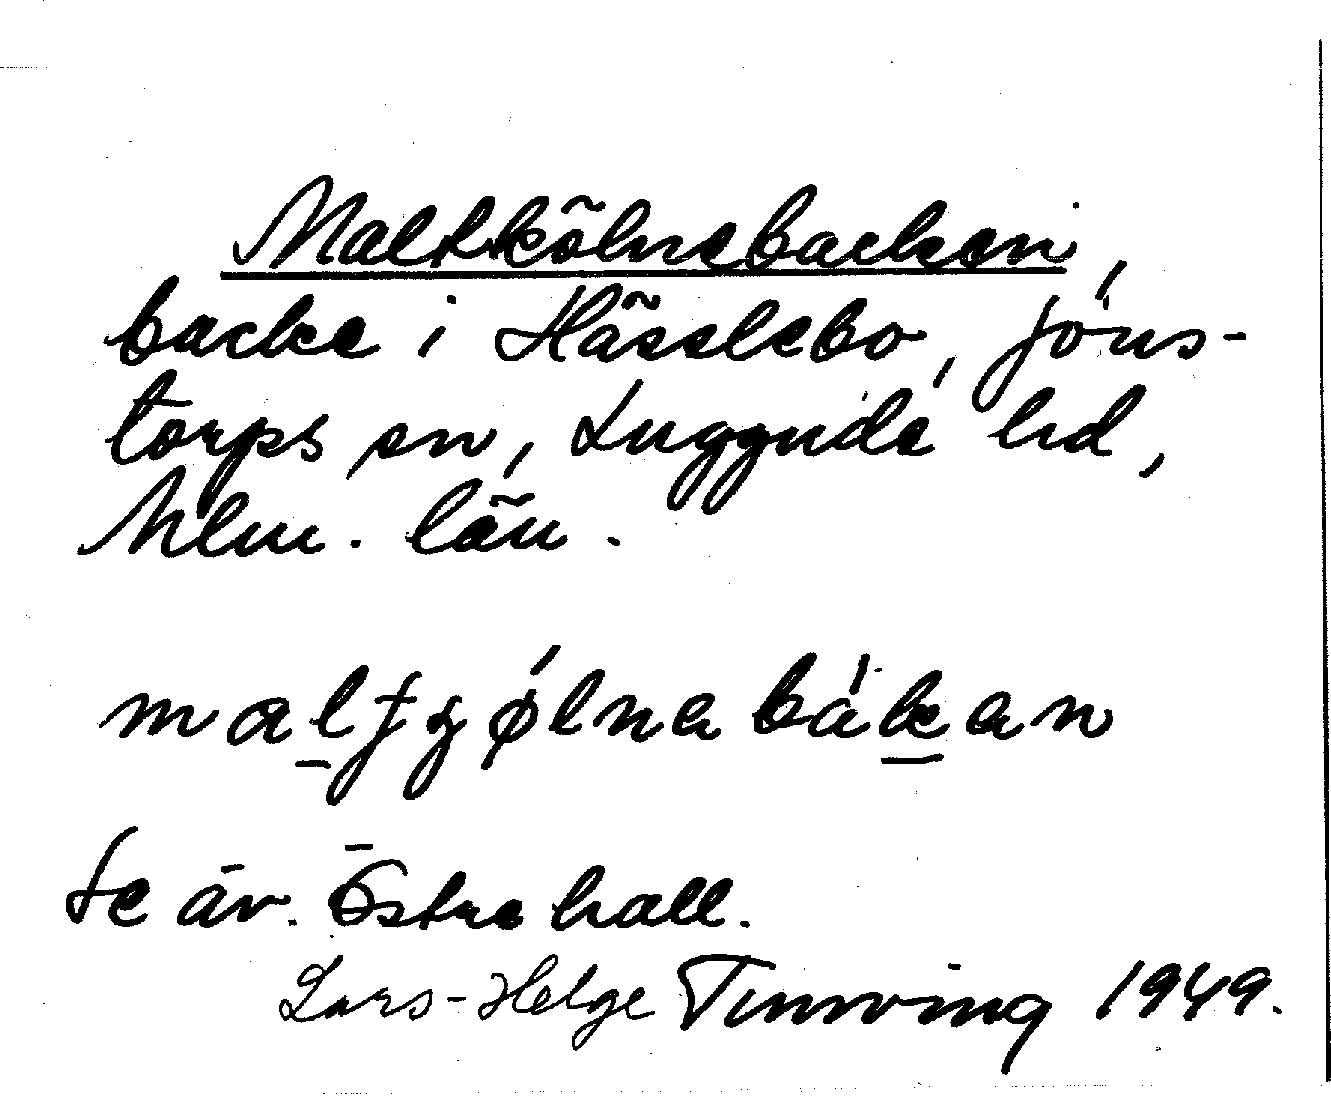 Maltkölnebacken,
backe i Hässlebo, Jöns-
torps sn, Luggude hd,
Mlm. län.
Se äv. Östra hall.
Lars-Helge Tunving 1949.